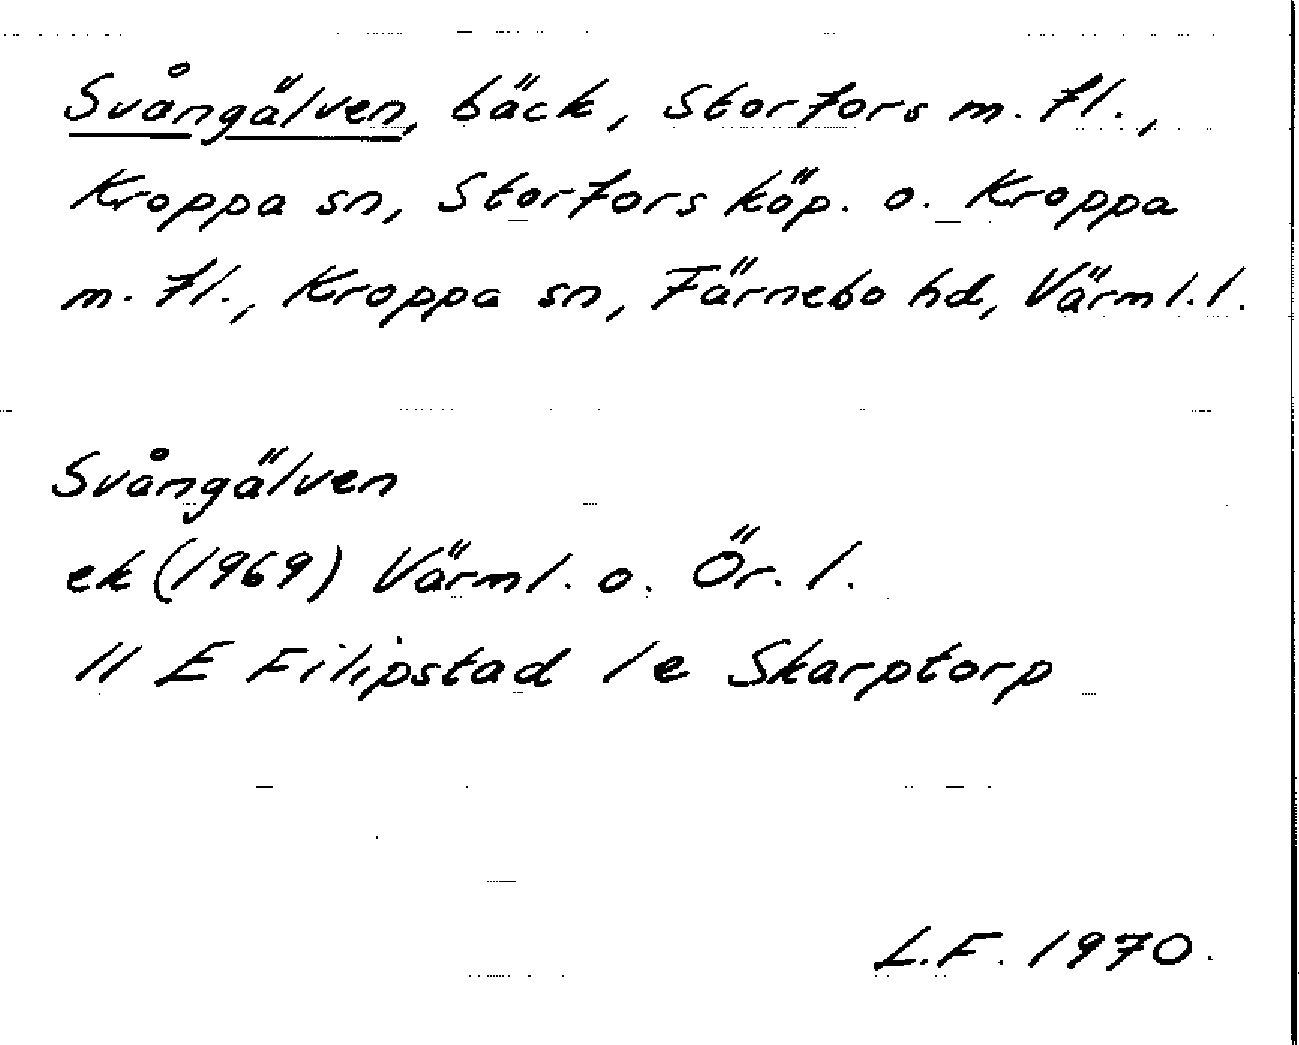 Svångälven, bäck, Storfors m. fl.,
Kroppa sn, Storfors köp. o. Kroppa
m. fl., Kroppa sn, Färnebo hd, Värml. l.
Svångälven
ek (1969) Värml. o. Ör. l.
11 E Filipstad 1e Skarptorp
L.F. 1970.